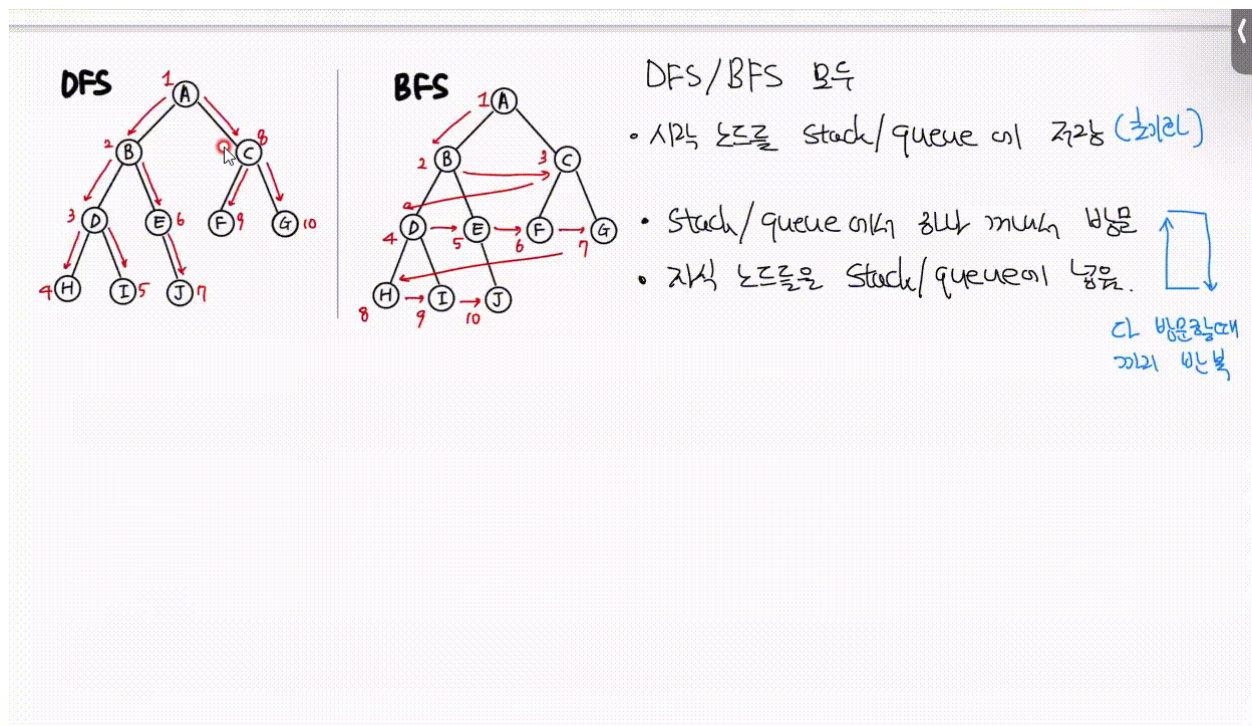 DFS
1 A
2 B
8 C
3 D
E 6
F 9
G 10
4 H
I 5
J 7
BFS
1 A
2 B
3 C
4 D
5 E
6 F
7 G
8 H
9 I
10 J
DFS/BFS 모두
• 시작 노드를 stack/queue에 저장 (초기화)
• Stack/queue에서 하나 꺼내서 방문
• 자식 노드들을 Stack/queue에 넣음.
다 방문할때
까지 반복